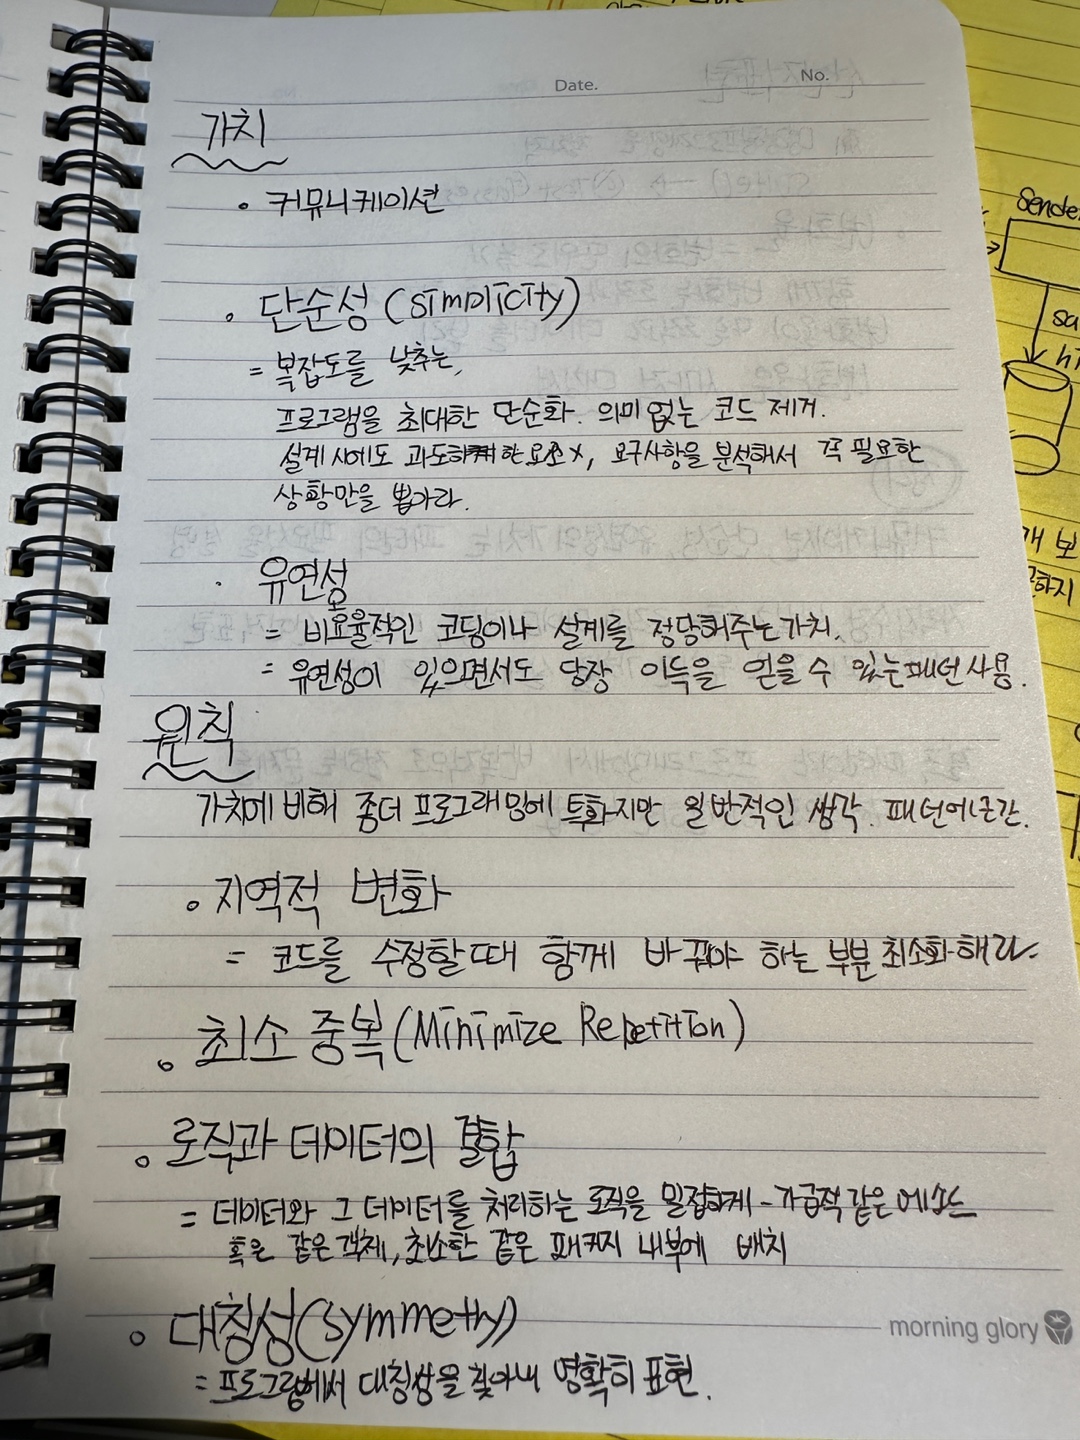 Date.
No.
가치
· 커뮤니케이션
· 단순성 (simplicity)
= 복잡도를 낮추는,
프로그램을 최대한 단순화. 의미 없는 코드 제거.
설계 시에도 과도한 요소 x, 요구사항을 분석해서 꼭 필요한
상황만을 뽑아라.
· 유연성
= 비효율적인 코딩이나 설계를 정당해주는 가치.
= 유연성이 있으면서도 당장 이득을 얻을 수 있는 패턴 사용.
원칙
가치에 비해 좀더 프로그래밍에 특화지만 일반적인 생각. 패턴에 근간.
· 지역적 변화
= 코드를 수정할때 함께 바꿔야 하는 부분 최소화 해라.
· 최소 중복 (Minimize Repetition)
· 로직과 데이터의 결합
= 데이터와 그 데이터를 처리하는 로직을 밀접하게 - 가급적 같은 메소드
혹은 같은 객체, 최소한 같은 패키지 내부에 배치
· 대칭성 (symmetry)
= 프로그램에서 대칭성을 찾아내 명확히 표현.
morning glory
Sender